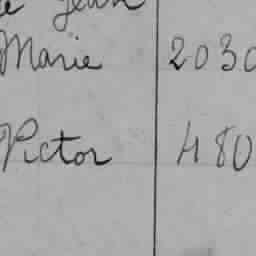 Jean
Marie 2030
Victor 480